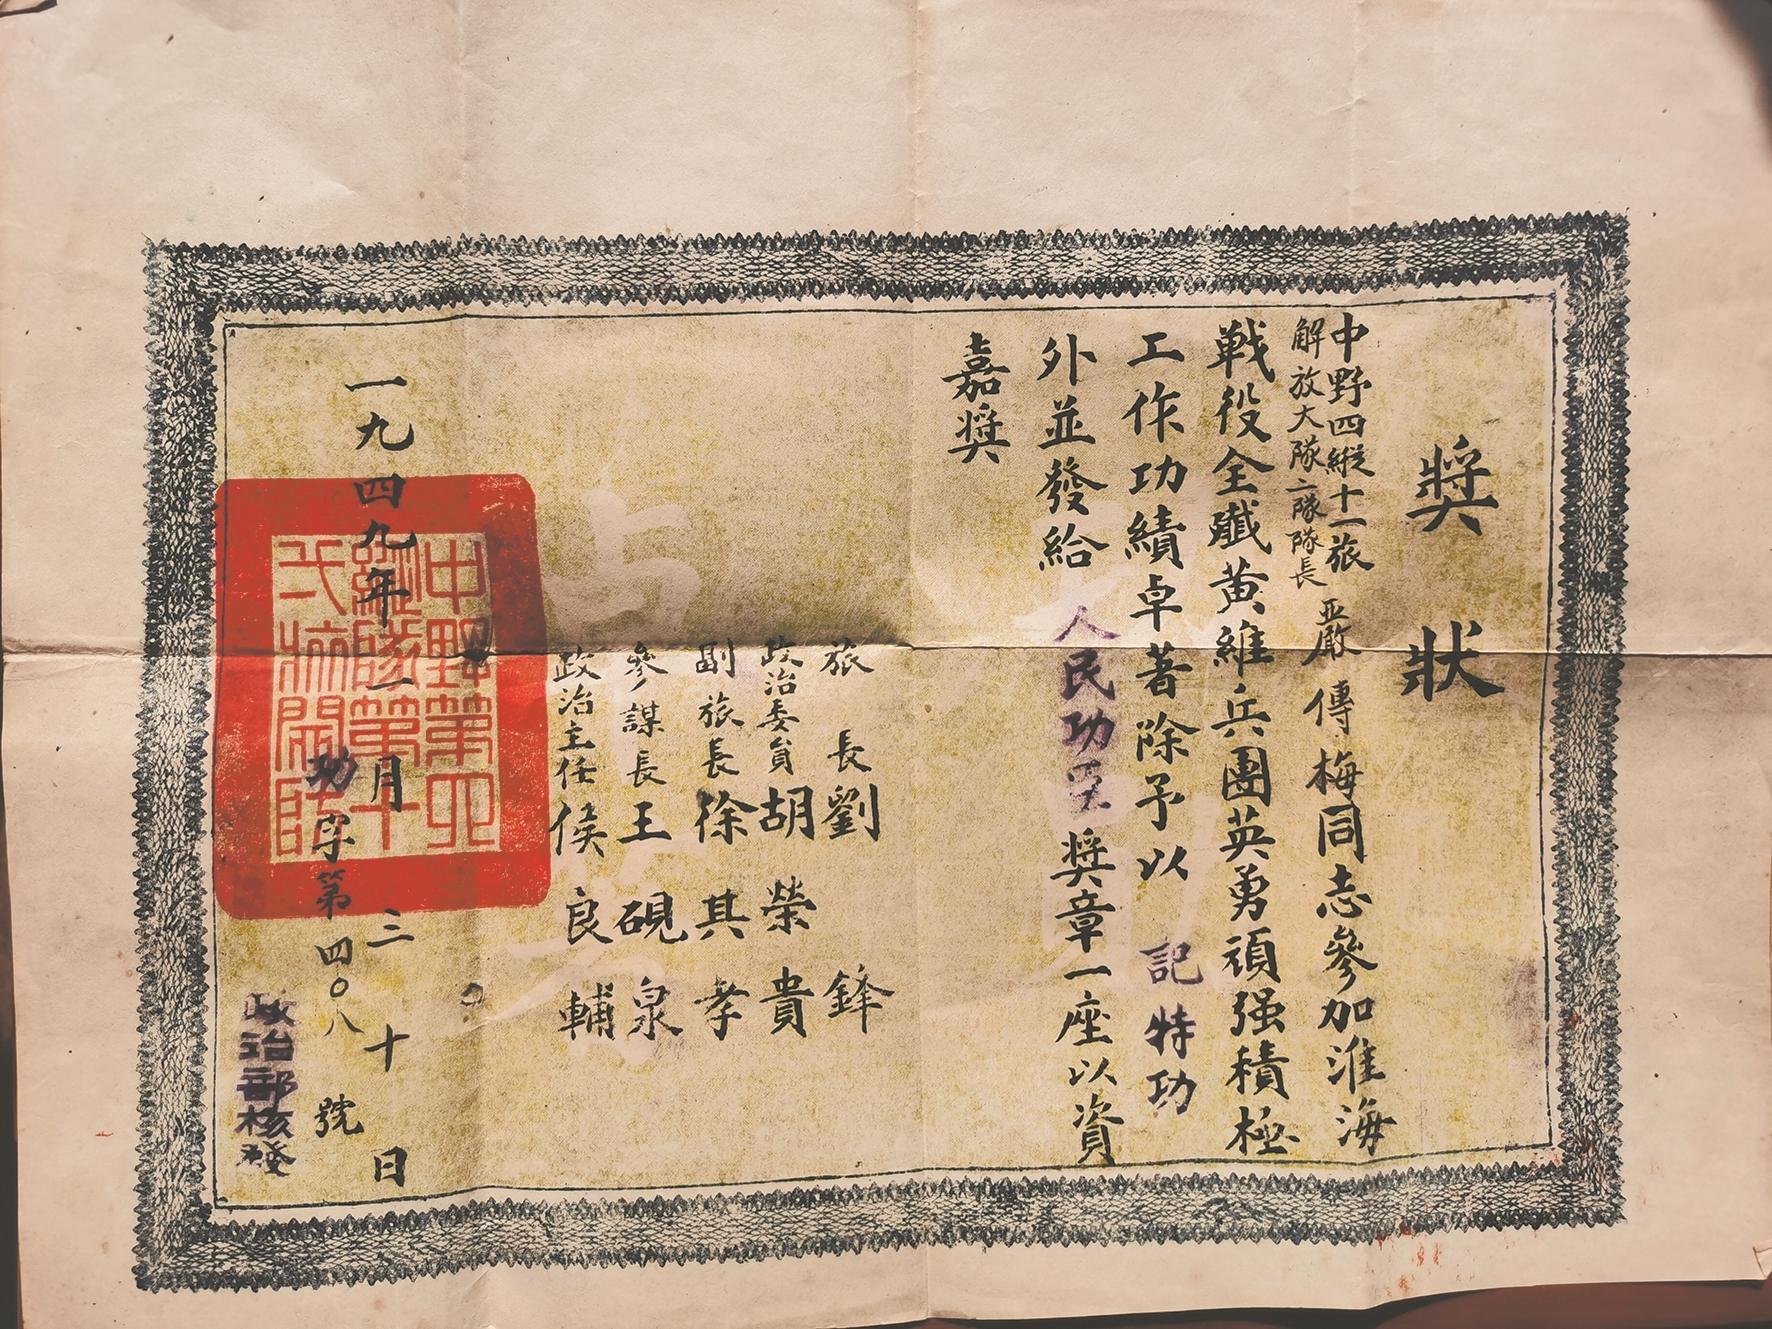 獎狀
中野四縱十一旅
解放大隊二隊隊長
嚴傳梅同志參加淮海
戰役全殲黄維兵團英勇頑强積極
工作功績卓著除予以記特功
外並發給人民功臣獎章一座以資
嘉奬
旅長劉鋒
政治委員胡榮貴
副旅長徐其孝
參謀長王硯泉
政治主任侯良輔
一九四九年一月三十日
功字第四〇八號
政治部核發
中野第四
縱隊第十